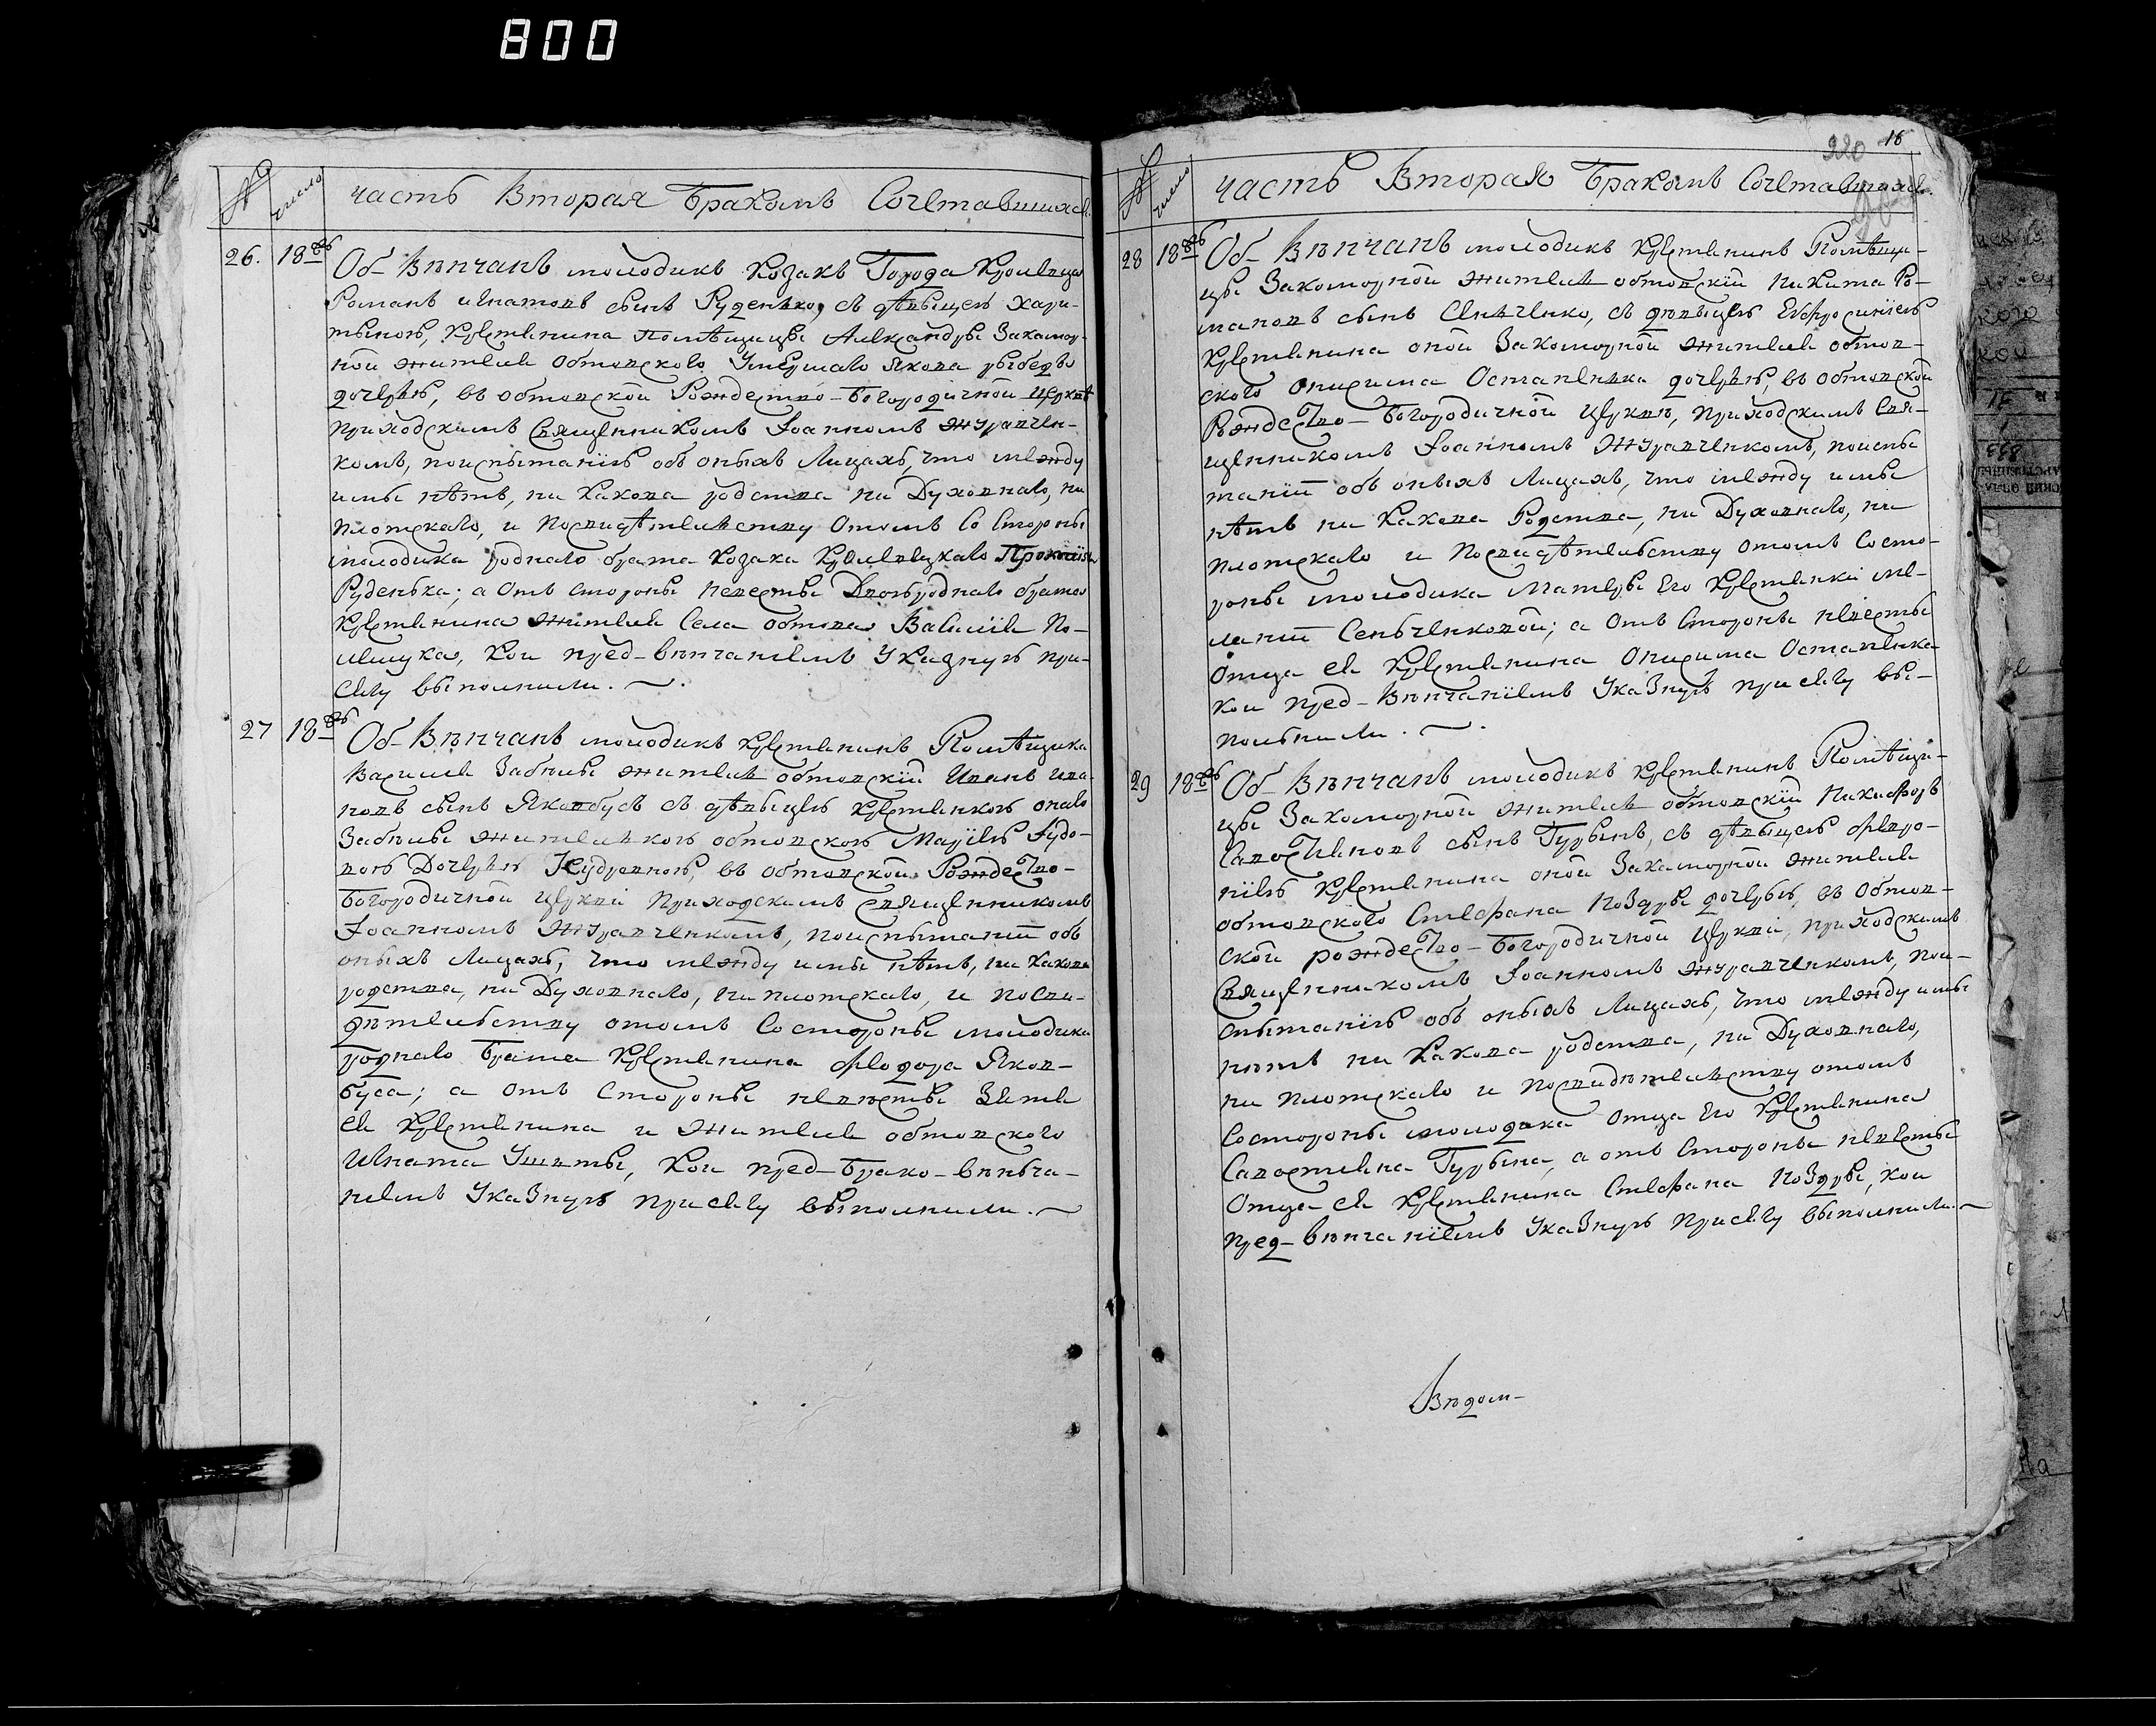 800
№ число часть Вторая Бракомъ Сочетавшихся.
26. 18 Об-Вѣнчанъ молодикъ Козакъ Города Кролевца
Романъ Игнатовъ сынъ Руденко, съ дѣвицею Хари-
тыною, Крестянина Помѣщицы Александры Закамор-
ной жителя Обтовского Умершаго Якова
дочерью, въ обтовской Рождество-Богородичной церкве
приходскимъ Священникомъ Іоанномъ Журавчен-
комъ, поиспытаніи объ оныхъ Лицахъ, что между
имы нѣтъ, ни какова родства, ни Духовнаго, ни
плотскаго, и посвидѣтелству отомъ Со стороны
молодика роднаго брата Козака Кролевецкаго Прокопія
Руденька; а отъ стороны невесты Двоюроднаго брата
Крестянина жителя Села обтова Василія По-
лещука, кои пред-вѣнчаніемъ Указную при-
сягу выполнили.
27 18 Об-Вѣнчанъ молодикъ Крестянинъ Помѣщика
Василя Забѣлы житель обтовскій Иванъ Ива-
новъ сынъ Яковбусъ съ дѣвицею крестянкою онаго
Забѣлы жителькою обтовскою Маріею Ѳедо-
вою Дочерью Кудревною, въ обтовской Рождество-
Богородичной церкви приходскимъ священникомъ
Іоанномъ Журавченкомъ, поиспытаніи объ
оныхъ Лицахъ, что между имы нѣтъ, ни какова
родства, ни Духовнаго, ни плотскаго, и посви-
дѣтельству отомъ Состороны молодика
роднаго Брата Крестянина Федора Яков-
буса; а отъ Стороны невѣсты Зятя
ея Крестянина и жителя обтовского
Игната кои пред-Брако-вѣньча-
ніемъ Указную присягу выполнили.
220 16
№ число часть Вторая Бракомъ Сочетавшихся.
28 18 Об-Вѣнчанъ молодикъ Крестянинъ Помѣщи-
цы Закоморной житель обтовскій Никита Ро-
мановъ сынъ Сенченко, съ дѣвицею Евфросиніею
Крестянина оной Закоморной жителя обтов-
ского Онисима Остапенка дочерью, въ обтовской
Рождество-Богородичной церкви, приходскимъ Свя-
щенникомъ Іоанномъ Журавченкомъ, поиспы
таніи объ оныхъ Лицахъ, что между имы
нѣтъ ни какова Родства, ни Духовнаго, ни
плотскаго и посвидѣтельству отомъ Состо-
роны молодика Матеры Его Крестянки Ме-
ланіи Сеньченковой; а отъ Стороны невесты
отца ея Крестянина Онисима Остапенка
кои пред-Вѣнчаніемъ Указную присягу вы-
полънили.
29 18 Об-Вѣнчанъ молодикъ Крестянинъ Помѣщи-
цы Закоморной житель обтовскій Никифоръ
Савостиановъ сынъ Гурынъ, съ дѣвицею Февро-
ніею Крестянина оной Закаморной жителя
обтовского Стефана Ноздры дочерью, въ Обтов-
ской рождество-Богородичной церкви, приходскимъ
Священникомъ Іоанномъ Журавченкомъ, пои-
спытаніи объ оныхъ Лицахъ, что между имы
нѣтъ ни какова родства, ни Духовнаго,
ни плотскаго и посвидѣтельству отомъ
Состороны молодика отца Его Крестянина
Савостиана Гурына, а отъ Стороны невесты
Отца ея Крестянина Стефана Ноздры, кои
пред-вѣнчаніемъ Указную присягу выполнили.
Вѣдом-